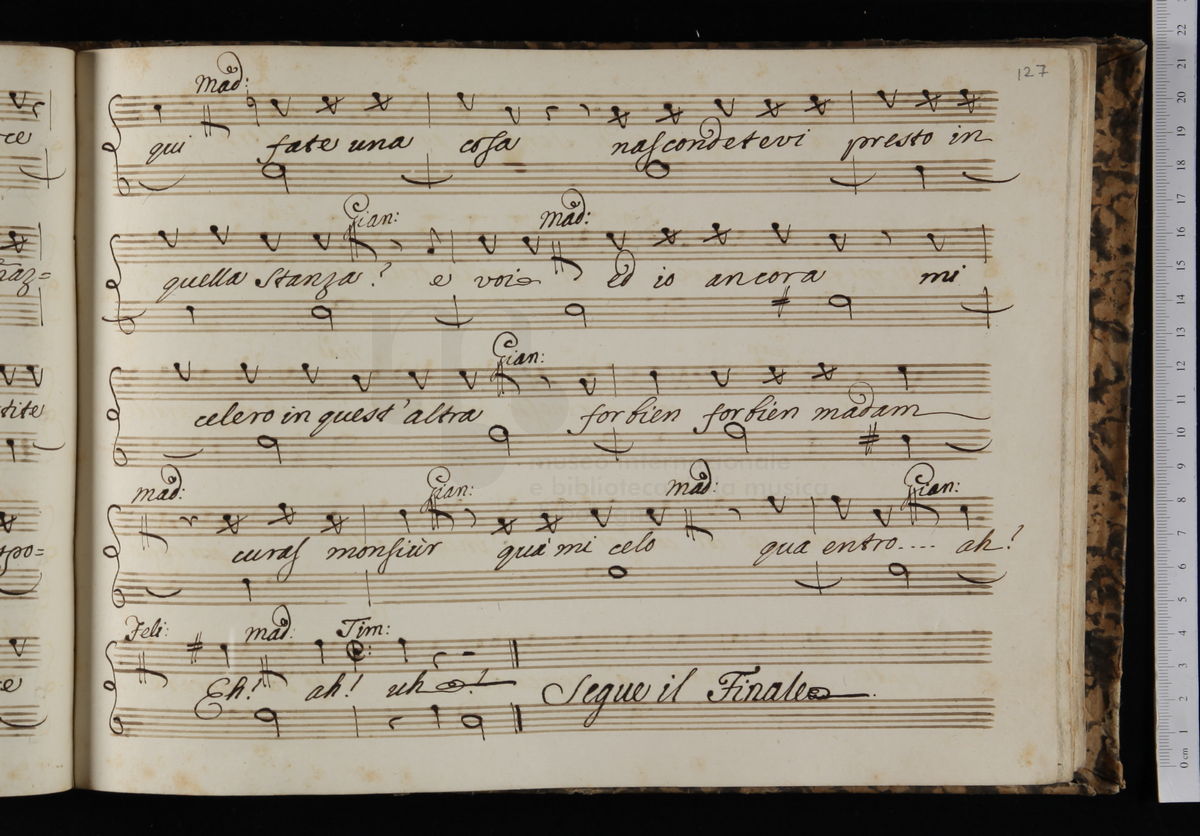 127
Mad:
qui fate una cosa nascondetevi presto in
Gian: Mad:
quella stanza? e voi ed io ancora mi
Gian:
celero in quest'altra for bien for bien madam
Mad: Gian: Mad: Gian:
curas monsiùr qua mi celo qua entro.... ah!
Feli: Mad: Tim:
Eh! ah! uh!
Segue il Finale
Museo internazionale
e biblioteca della musica